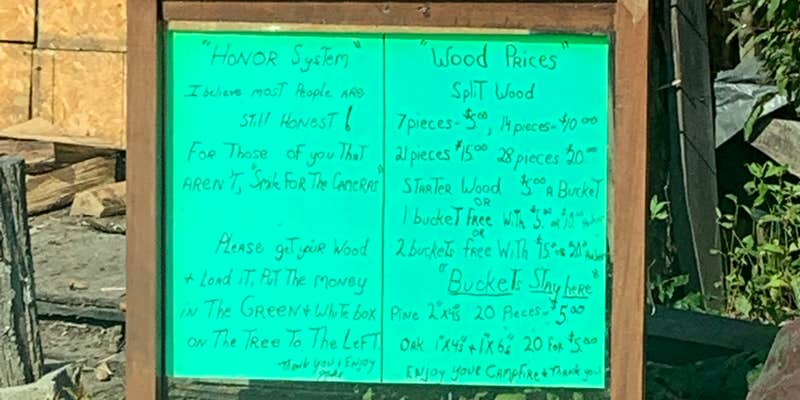 "Honor System"
I believe most People are
Still Honest!
For Those of you That
Aren't, "Smile For The Cameras"
Please get your Wood
+ Load it, Put The money
in The Green + White box
on The Tree To The Left.
Thank you & Enjoy
"Wood Prices"
Split Wood
7 pieces - $5.00, 14 pieces - $10.00
21 pieces $15.00 28 pieces $20.00
Starter Wood $5.00 A Bucket
OR
1 bucket Free With $5.00 or $10.00
OR
2 buckets free With $15.00 or $20.00
"Buckets Stay here"
Pine 2"x4s 20 Pieces = $5.00
Oak 1"x4s + 1"x6s 20 For $5.00
Enjoy Your Campfire + Thank you